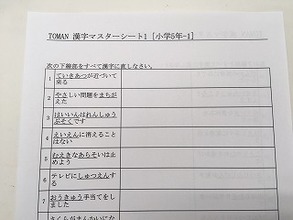 TOMAN 漢字マスターシート1 [小学5年-1]
次の下線部をすべて漢字に直しなさい。
1
ていきあつが近づいて
来る
2
やさしい問題をまちが
えた
3
はいいんはれんしゅう
ぶそくです
4
えいえんに消えること
はない
5
むえきなあらそいは止
めよう
6
テレビにしゅつえんす
る
7
おうきゅう手当てをし
ました
さくらがまんかいにな